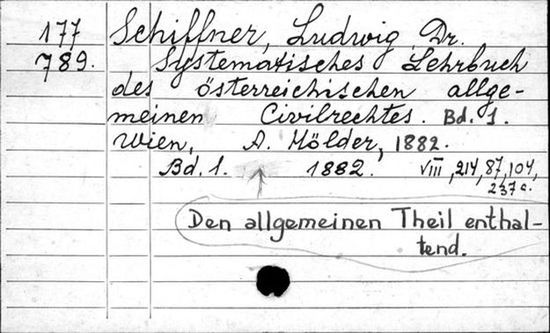 177 Schiffner, Ludwig Dr.
789. Systematisches Lehrbuch
des österreichischen allge-
meinen Civilrechtes. Bd. 1.
Wien, A. Hölder, 1882.
Bd. 1. 1882. VIII, 214, 87, 104,
237 c.
Den allgemeinen Theil enthal-
tend.